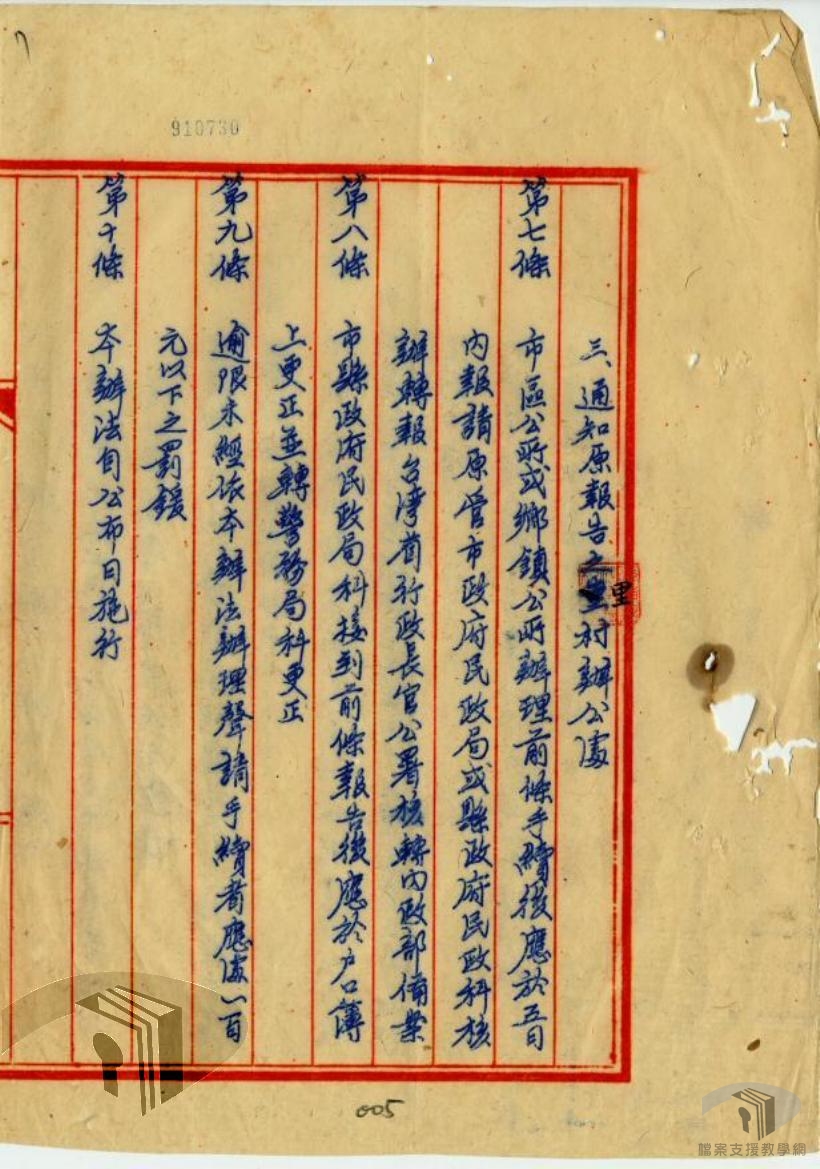 910730
三、通知原報告之里村辦公處
第七條 市區公所或鄉鎮公所辦理前條手續後應於五日
內報請原管市政府民政局或縣政府民政科核
辦轉報台灣省行政長官公署核轉內政部備案
第八條 市縣政府民政局科接到前條報告後應於户口簿
上更正並轉警務局科更正
第九條 逾限未經依本辦法辦理聲請手續者應處一百
元以下之罰鍰
第十條 本辦法自公布日施行
005
檔案支援教學網